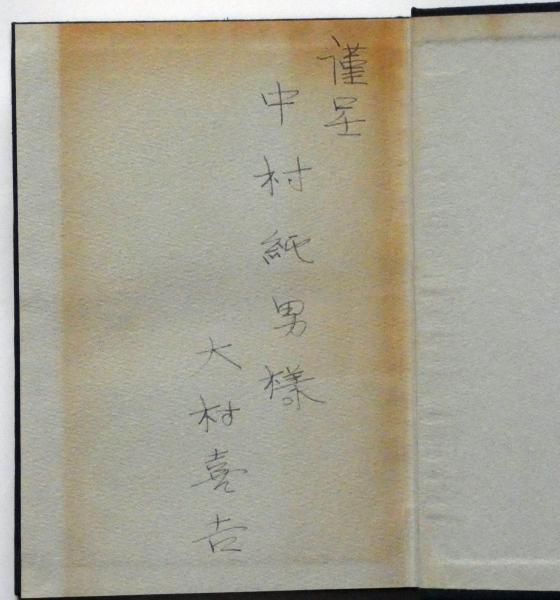 謹呈
中村純男様
大村喜吉